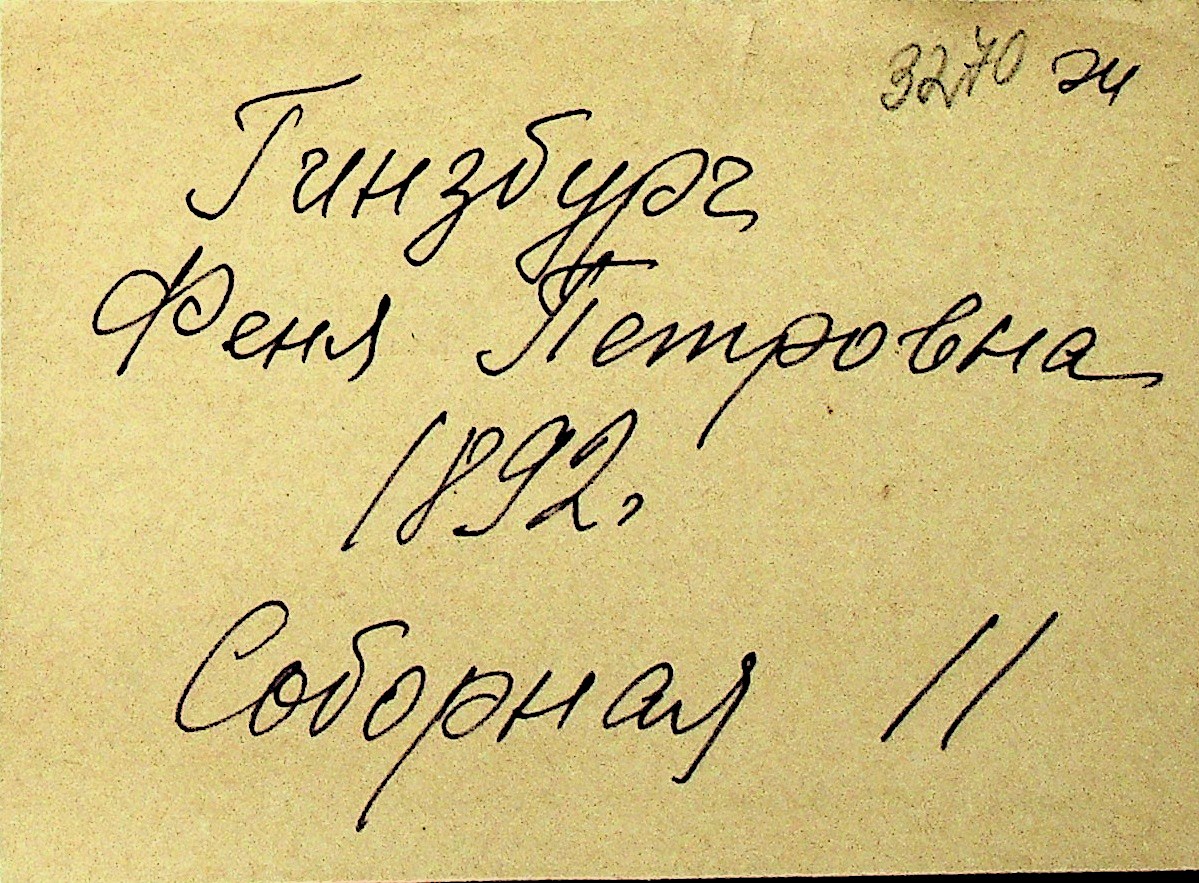 3270 ж
Гинзбург
Феня Петровна
1892г
Соборная 11